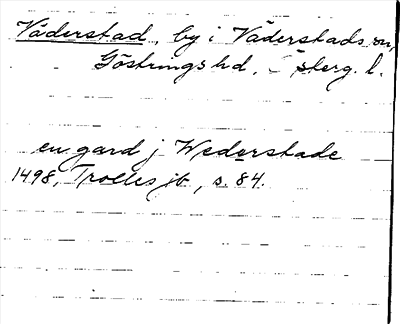 Väderstad, by i Väderstads sn,
Göstrings hd, Österg. l.
en gard j Wederstade
1498, Trolles jb, s. 84.